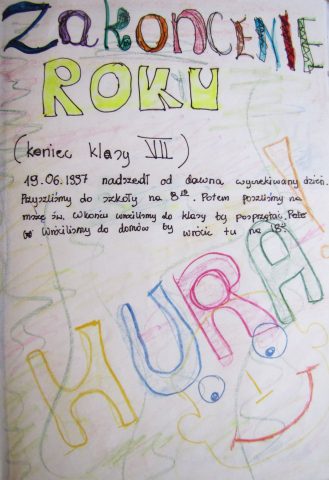 ZAKOŃCENIE
ROKU
(koniec klasy VII)
19.06.1997 nadszedł od dawna wyczekiwany dzień.
Przyszliśmy do szkoły na 8¹⁰. Potem poszliśmy na
mszę św. W końcu wróciliśmy do klasy by posprzątać. Potem
Wróciliśmy do domów by wrócić tu na
HURA!